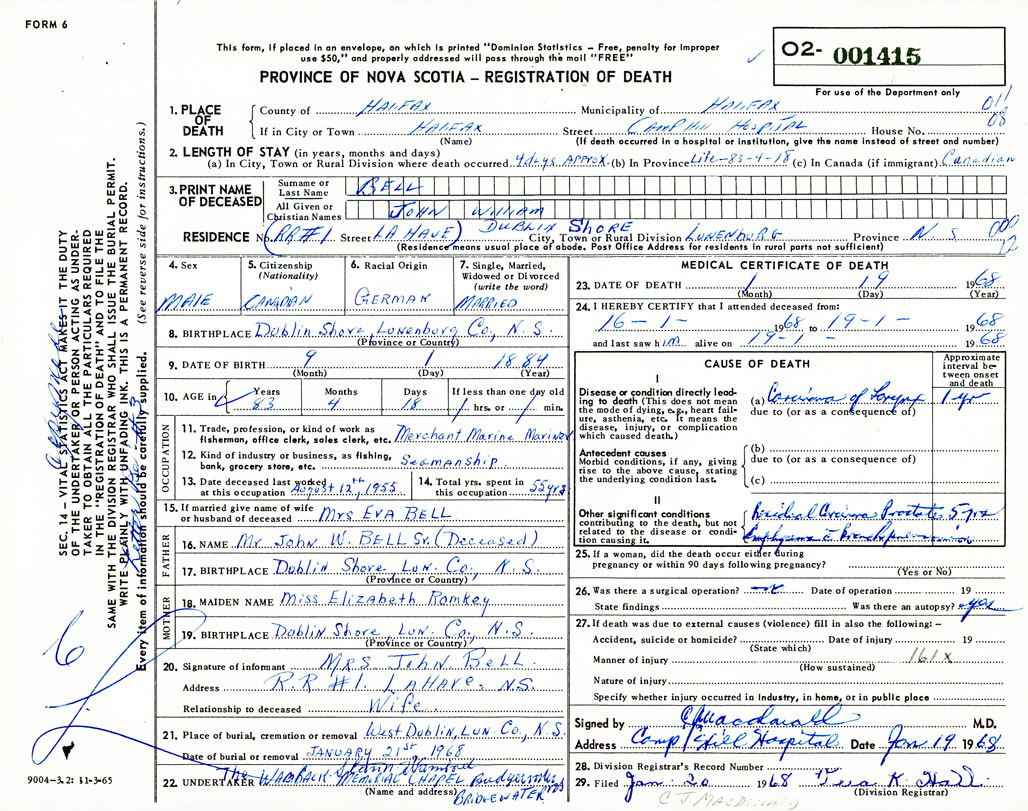 FORM 6
This form, if placed in an envelope, on which is printed "Dominion Statistics – Free, penalty for improper
use $50," and properly addressed will pass through the mail "FREE"
PROVINCE OF NOVA SCOTIA – REGISTRATION OF DEATH
02- 001415
For use of the Department only
1. PLACE OF DEATH
County of HALIFAX Municipality of HALIFAX 011
If in City or Town HALIFAX Street CAMP HILL HOSPITAL House No. 08
(Name) (If death occurred in a hospital or institution, give the name instead of street and number)
2. LENGTH OF STAY (in years, months and days)
(a) In City, Town or Rural Division where death occurred 4 days Approx. (b) In Province Life-83-4-18 (c) In Canada (if immigrant) Canadian
3. PRINT NAME OF DECEASED
Surname or Last Name BELL
All Given or Christian Names JOHN WILLIAM
RESIDENCE No. (RR#1 Street LA HAVE) DUBLIN SHORE City, Town or Rural Division LUNENBURG Province N.S 000
(Residence means usual place of abode. Post Office Address for residents in rural parts not sufficient) 12
4. Sex MALE
5. Citizenship (Nationality) CANADIAN
6. Racial Origin GERMAN
7. Single, Married, Widowed or Divorced (write the word) MARRIED
8. BIRTHPLACE Dublin Shore, Lunenburg Co., N.S.
(Province or Country)
9. DATE OF BIRTH 9 1 1884
(Month) (Day) (Year)
10. AGE in Years 83 Months 4 Days 18 If less than one day old / hrs. or / min.
OCCUPATION
11. Trade, profession, or kind of work as
fisherman, office clerk, sales clerk, etc. Merchant Marine Mariner
12. Kind of industry or business, as fishing,
bank, grocery store, etc. Seamanship.
13. Date deceased last worked
at this occupation August 12th, 1955
14. Total yrs. spent in
this occupation 55 yrs
15. If married give name of wife
or husband of deceased Mrs EVA BELL
FATHER
16. NAME Mr. John W. BELL Sr. (Deceased)
17. BIRTHPLACE Dublin Shore, Lun. Co., N.S.
(Province or Country)
MOTHER
18. MAIDEN NAME Miss Elizabeth Romkey
19. BIRTHPLACE Dublin Shore, Lun. Co., N.S.
(Province or Country)
20. Signature of informant MRS John Bell.
Address R.R #1. LaHave, N.S.
Relationship to deceased Wife.
21. Place of burial, cremation or removal West Dublin, Lun. Co., N.S.
Date of burial or removal JANUARY 21st 1968
22. UNDERTAKER The Memorial Chapel
(Name and address) BRIDGEWATER
MEDICAL CERTIFICATE OF DEATH
23. DATE OF DEATH 1 19 1968
(Month) (Day) (Year)
24. I HEREBY CERTIFY that I attended deceased from:
16 – 1 – 1968 to 19 – 1 – 1968
and last saw him alive on 19 – 1 – 1968
CAUSE OF DEATH
Approximate interval between onset and death
I
Disease or condition directly leading to death (This does not mean
the mode of dying, e.g., heart failure, asthma, etc. It means the
disease, injury, or complication
which caused death.)
(a) Carcinoma of Larynx 1 yr
due to (or as a consequence of)
Antecedent causes
Morbid conditions, if any, giving
rise to the above cause, stating
the underlying condition last.
(b)
due to (or as a consequence of)
(c)
II
Other significant conditions
contributing to the death, but not
related to the disease or condition causing it.
Residual Prostate 5 yrs
Emphysema c̄ Bronchopneumonia
25. If a woman, did the death occur either during
pregnancy or within 90 days following pregnancy?
(Yes or No)
26. Was there a surgical operation? Date of operation 19
State findings Was there an autopsy? yes
27. If death was due to external causes (violence) fill in also the following:–
Accident, suicide or homicide? Date of injury 19
(State which)
Manner of injury 161X
(How sustained)
Nature of injury
Specify whether injury occurred in industry, in home, or in public place
Signed by C Macdonald M.D.
Address Camp Hill Hospital Date Jan 19 1968
28. Division Registrar's Record Number
29. Filed Jan. 20 1968 Vera K. Hall
(Division Registrar)
C. J. MACDONALD
SEC. 14 – VITAL STATISTICS ACT MAKES IT THE DUTY
OF THE UNDERTAKER OR PERSON ACTING AS UNDERTAKER TO OBTAIN ALL THE PARTICULARS REQUIRED
IN THE "REGISTRATION OF DEATH" AND TO FILE THE
SAME WITH THE DIVISION REGISTRAR WHO SHALL ISSUE THE BURIAL PERMIT.
WRITE PLAINLY WITH UNFADING INK. THIS IS A PERMANENT RECORD.
Every item of information should be carefully supplied. (See reverse side for instructions.)
9004-3.2: 11-3-65